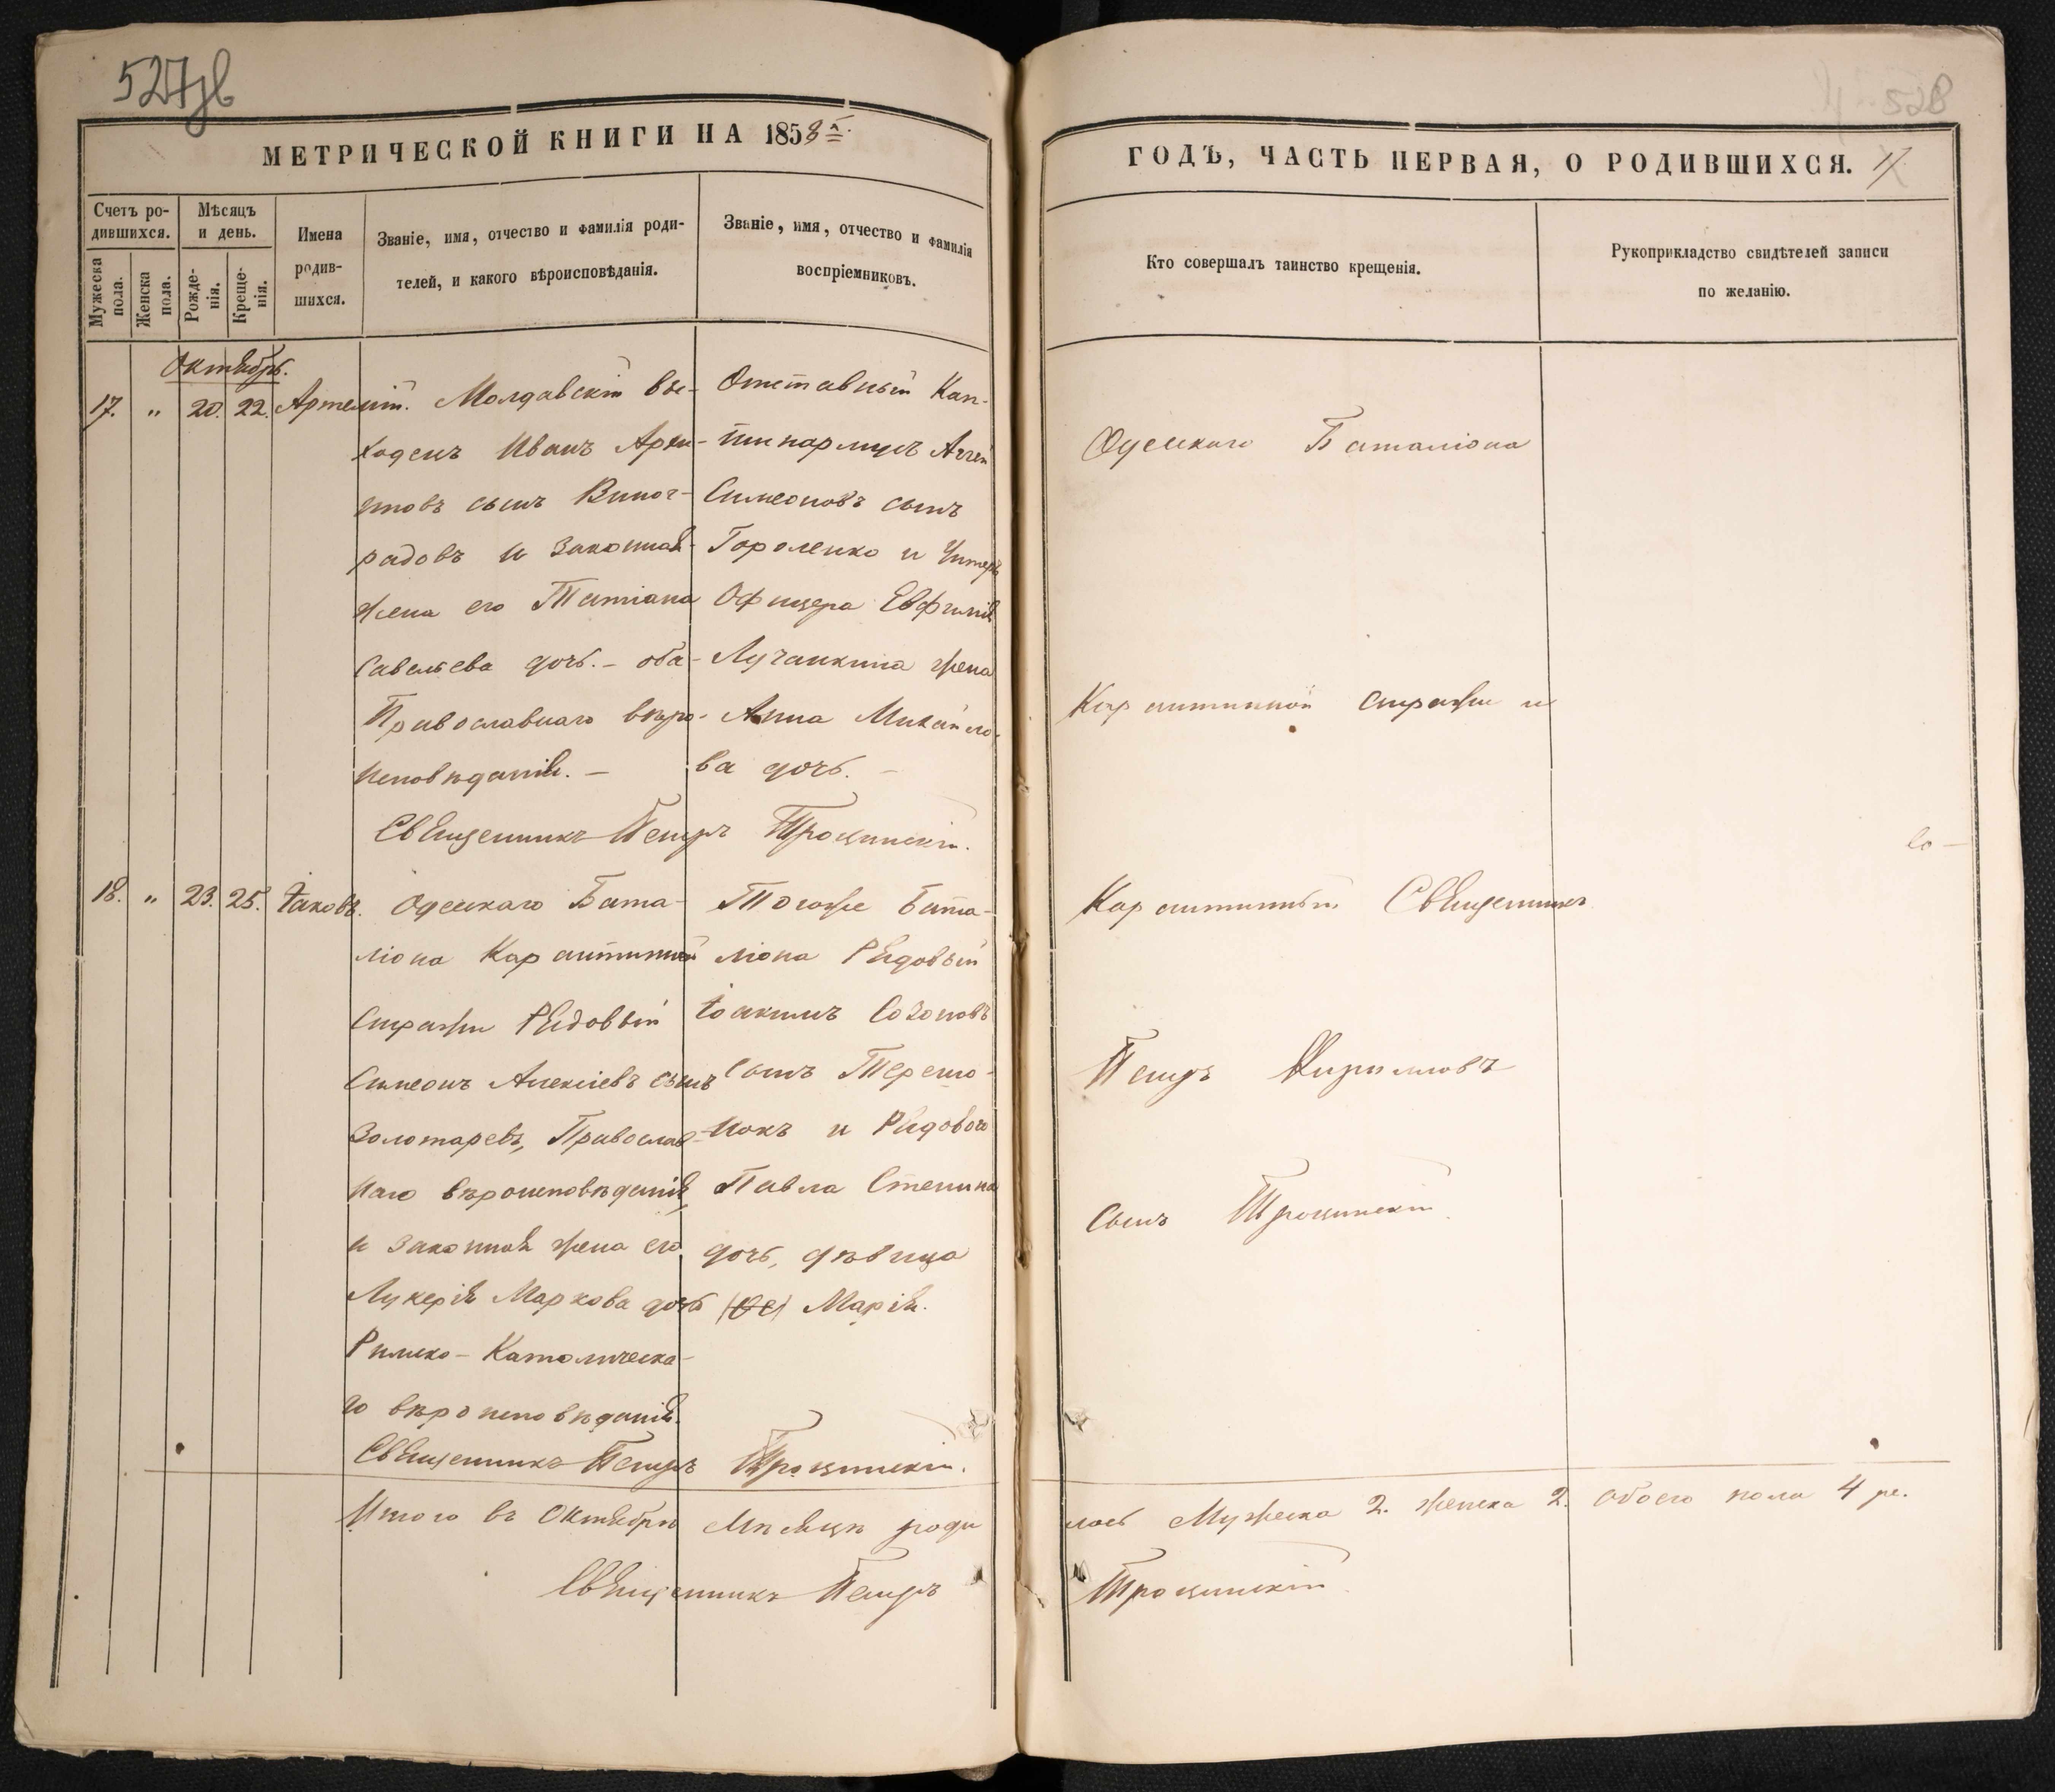 527об
528
МЕТРИЧЕСКОЙ КНИГИ НА 1858й.
ГОДЪ, ЧАСТЬ ПЕРВАЯ, О РОДИВШИХСЯ.
Счетъ ро-
дившихся.
Мужеска
пола.
Женска
пола.
Мѣсяцъ
и день.
Рожде-
нія.
Креще-
нія.
Имена
родив-
шихся.
Званіе, имя, отчество и фамилія роди-
телей, и какого вѣроисповѣданія.
Званіе, имя, отчество и фамилія
воспріемниковъ.
Кто совершалъ таинство крещенія.
Рукоприкладство свидѣтелей записи
по желанію.
Октябрь.
17. " 20. 22. Артемій.
Молдавскій вы-
ходецъ Иванъ
сынъ Виног-
радовъ и законная
жена его Татіана
Савельева дочь. – оба
Православнаго вѣро-
исповѣданія. –
Отставный Кап-
тинармусъ
Симеоновъ сынъ
Гороленко и Унтеръ
Офицера Евфимія
Лучанкина жена
Анна Михайло-
ва дочь. –
Священникъ Петръ Троцинскій.
18. " 23. 25. Іаковъ.
Одесскаго Бата-
ліона Карантинной
Стражи Рядовый
Симеонъ Алексіевъ сынъ
Золотаревъ, Православ-
наго вѣроисповѣданія,
и законная жена его
Лукерія Маркова дочь
Римско-Католическа-
го вѣроисповѣданія.
Тогоже Бата-
ліона Рядовый
Іоакимъ Созоновъ
сынъ Терещо-
нокъ и Рядового
Павла Стенина
дочь, дѣвица
Марія.
Священникъ Петръ Троцинскій.
Одесскаго Баталіона
Карантинной Стражи и
Карантинный Священникъ
Петръ Кирилловъ
сынъ Троцинскій
Итого въ Октябрѣ Мѣсяцѣ роди
лось Мужеска 2. женска 2. обоего пола 4
Священникъ Петръ
Троцинскій